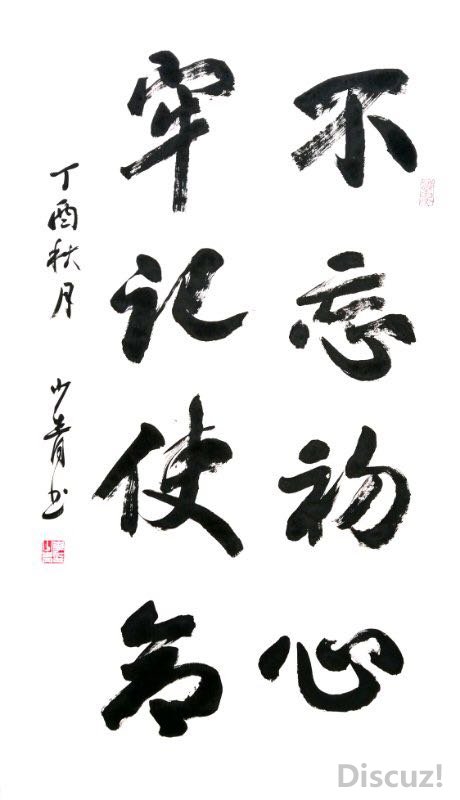 不忘初心
牢记使命
丁酉秋月 少青书
Discuz!